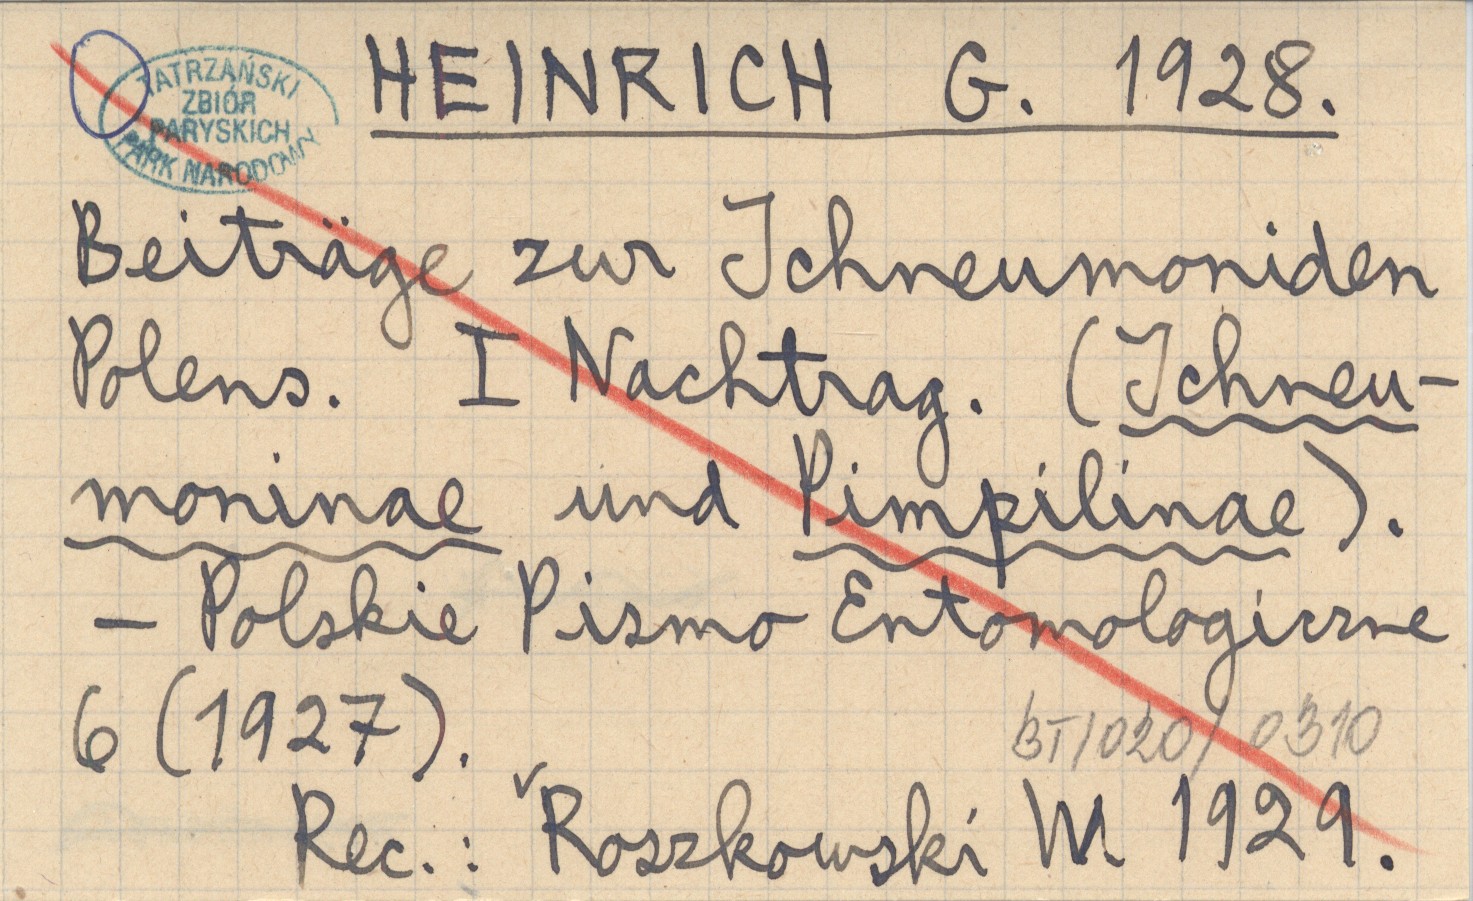 TATRZAŃSKI
ZBIÓR
PARYSKICH
PARK NARODOWY
HEINRICH G. 1928.
Beiträge zur Ichneumoniden
Polens. I Nachtrag. (Ichneu-
moninae und Pimpilinae).
— Polskie Pismo Entomologiczne
6 (1927).
BT/020/0310
Rec.: Roszkowski W. 1929.